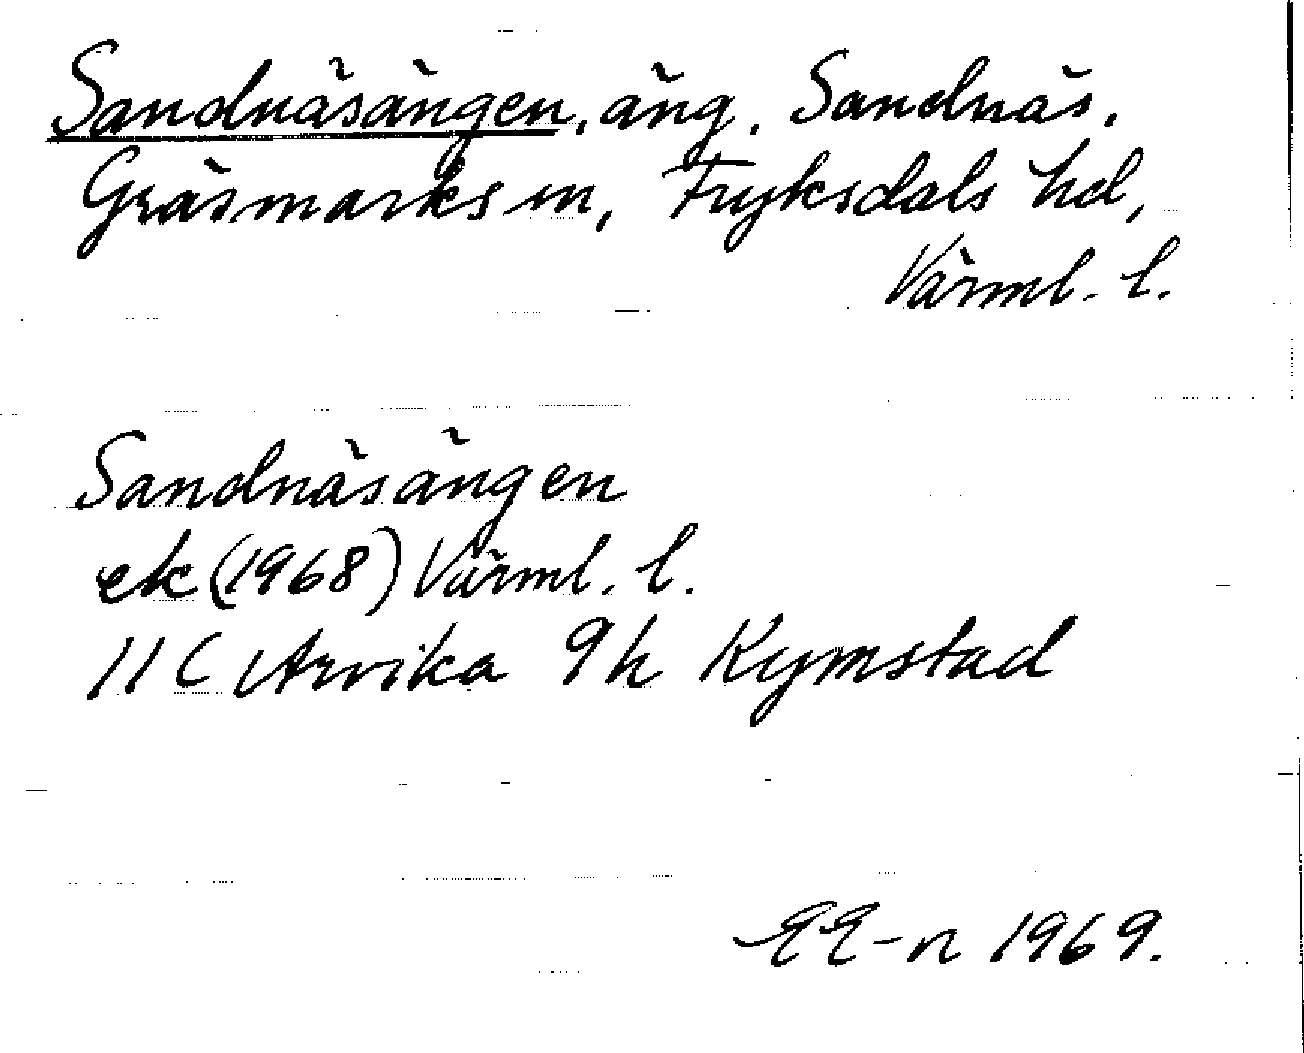 Sandnäsängen, äng. Sandnäs.
Gräsmarks sn, Fryksdals hd,
Värml. l.
Sandnäsängen
ek (1968) Värml. l.
11 C Arvika 9h Kymstad
EE-n 1969.